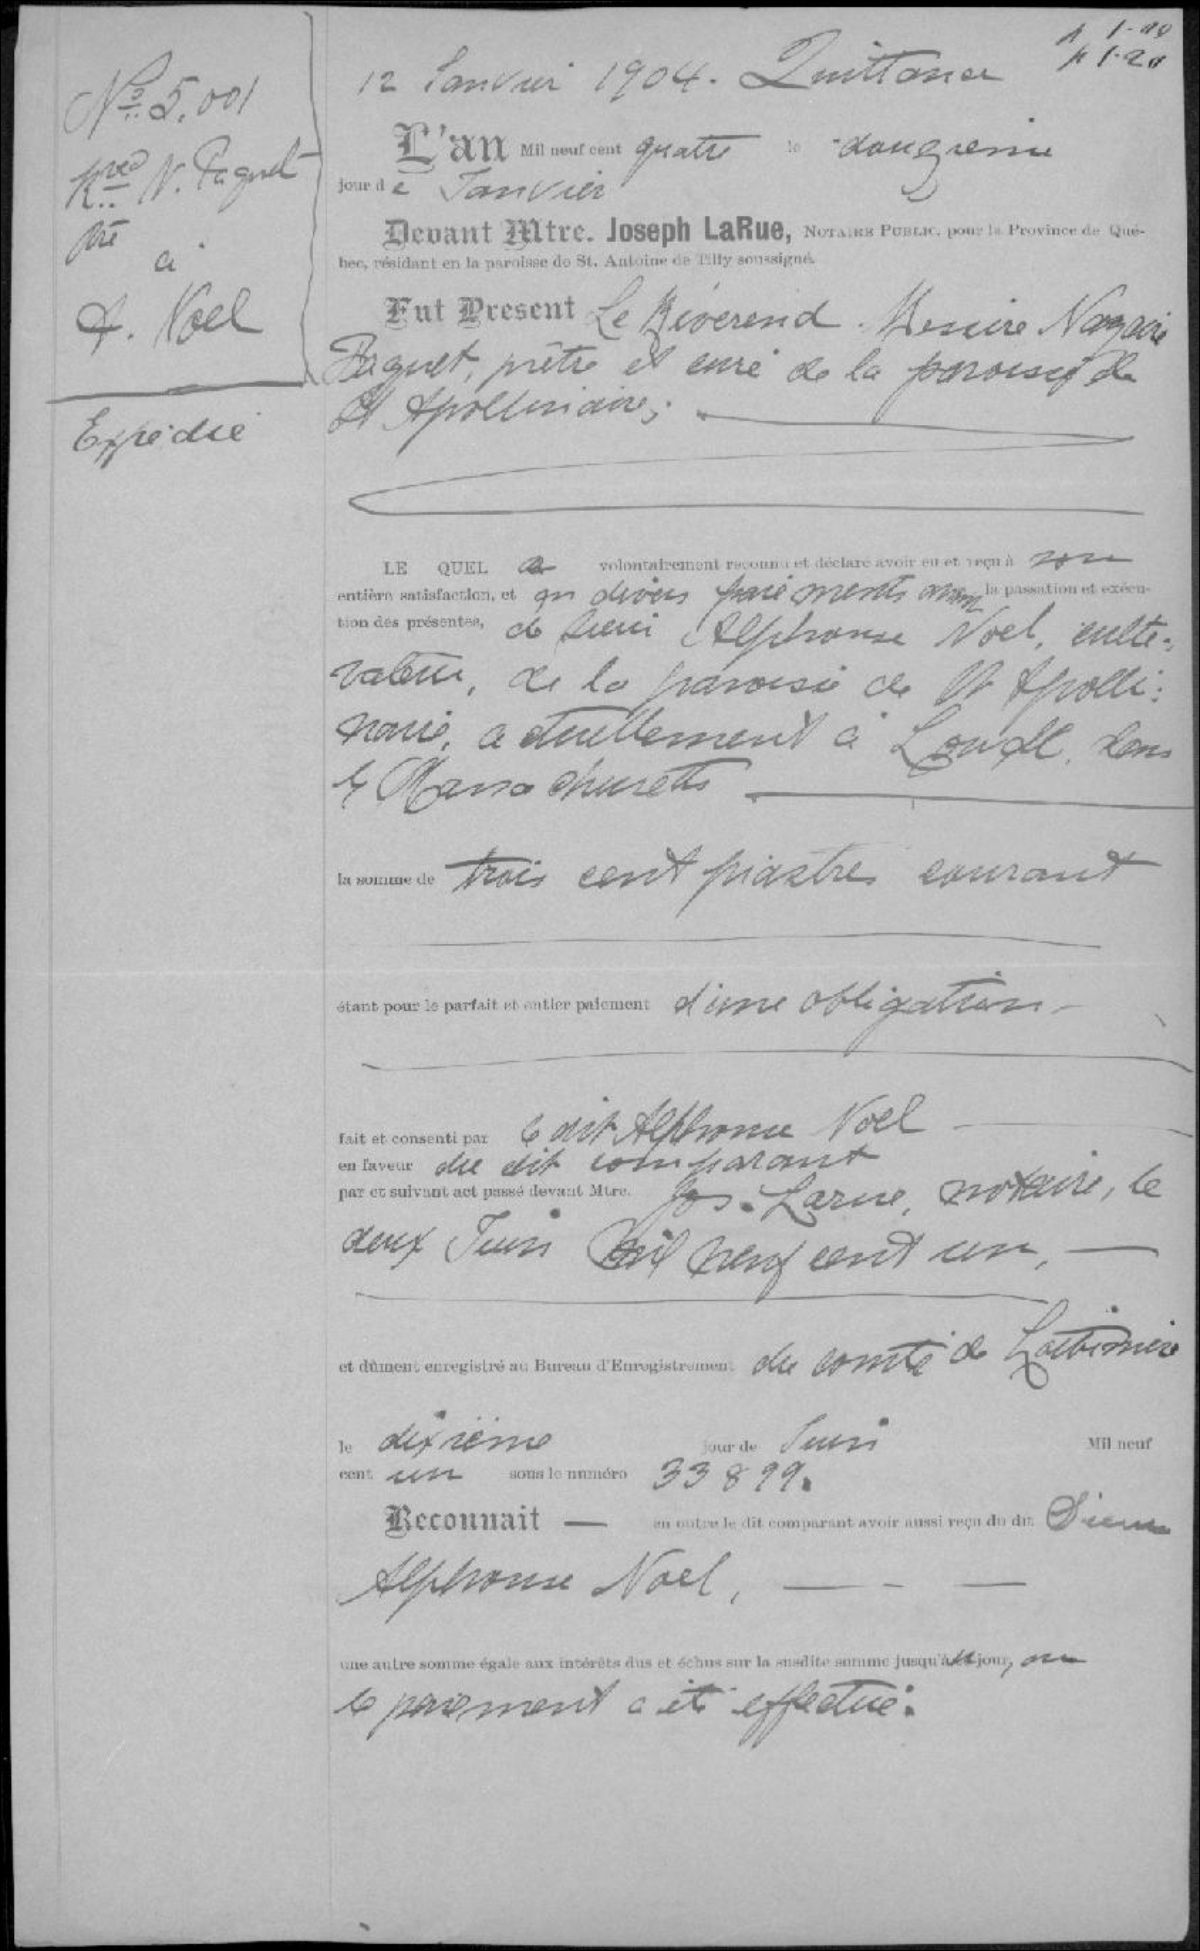 12 Janvier 1904. Quittance
1-20
No 5,001
Rvd N. Paquet
ptre
à
A. Noel
Expédié
L'an Mil neuf cent quatre le douzieme
jour de Janvier
Devant Mtre. Joseph LaRue, Notaire Public, pour la Province de Qué-
bec, résidant en la paroisse de St. Antoine de Tilly soussigné.
Fut Present Le Révérend Messire Nazaire
Paquet, prêtre et curé de la paroisse de
St Apollinaire;
LE QUEL a volontairement reconnu et déclaré avoir eu et reçu à son
entière satisfaction, et en divers paiements avant la passation et exécu-
tion des présentes, de Sieur Alphonse Noel, culti-
vateur, de la paroisse de St Apolli-
naire, actuellement à Lowell, dans
le Massachusetts
la somme de trois cent piastres courant
étant pour le parfait et entier paiement d'une obligation
fait et consenti par le dit Alphonse Noel
en faveur du dit comparant
par et suivant act passé devant Mtre. Jos. Larue, notaire, le
deux Juin Mil neuf cent un,
et dûment enregistré au Bureau d'Enregistrement du comté de Lotbinière
le dixième jour de Juin Mil neuf
cent un sous le numéro 33899.
Reconnait — en outre le dit comparant avoir aussi reçu du dit Sieur
Alphonse Noel, — - —
une autre somme égale aux intérêts dus et échus sur la susdite somme jusqu'au jour, ou
le paiement a été effectué.